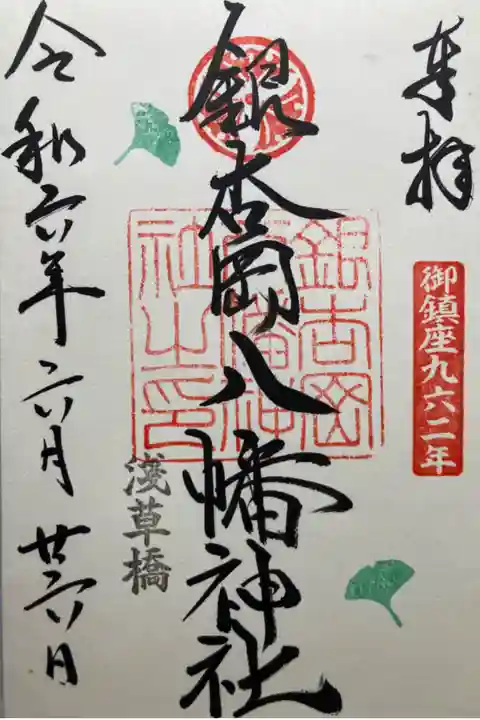 奉拝
御鎮座九六二年
銀杏岡八幡神社
銀杏岡八幡神社之印
淺草橋
令和六年六月廿六日